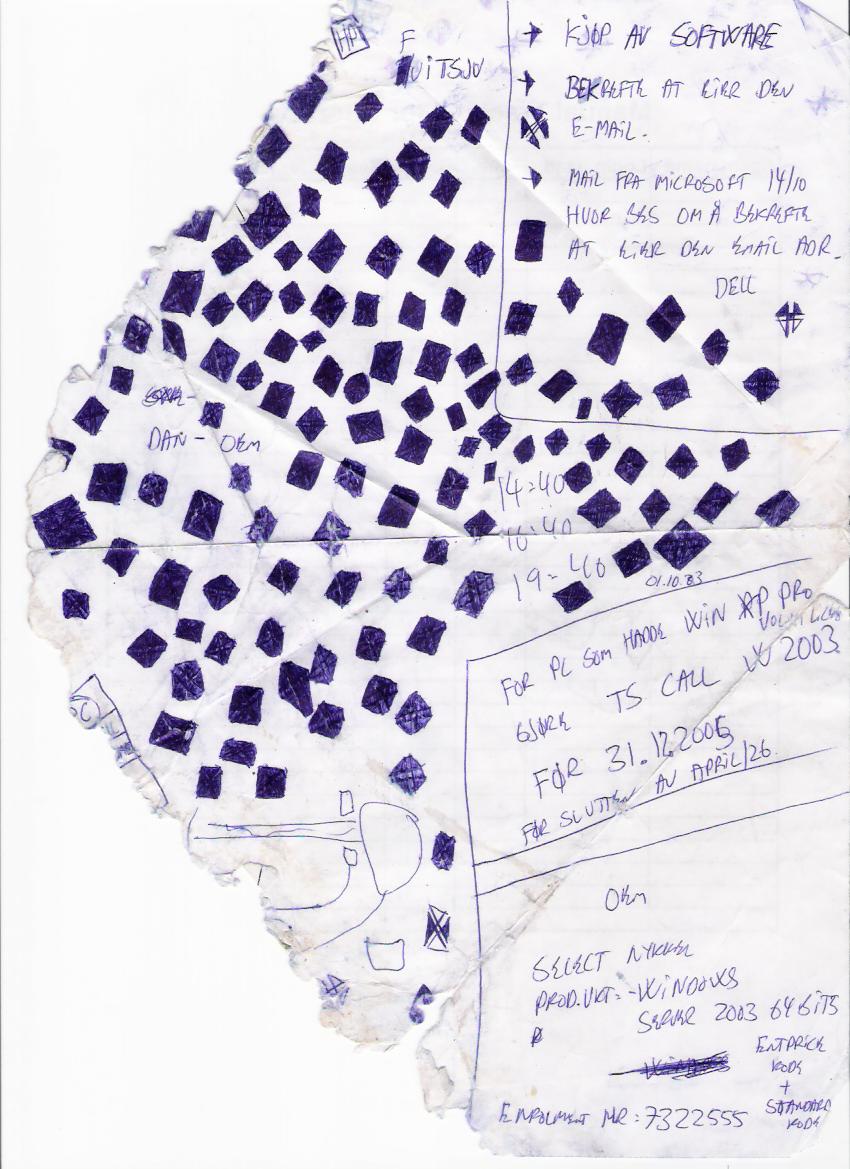 HP
F
UITSJU
KJØP AV SOFTWARE
BEKREFTE AT EIER DEN
E-MAIL.
MAIL FRA MICROSOFT 14/10
HVOR BES OM Å BEKREFTE
AT EIER DEN EMAIL ADR.
DELL
DAN- OEM
14:40
16:40
19:40
01.10.03
FOR PC SOM HADDE WIN XP PRO
GJØRE TS CALL W 2003
FØR 31.12.2005
FØR SLUTTEN AV APRIL/26.
OEM
SELECT NYKKEL
PROD.UKT:-WINDOWS
SERVER 2003 64 BITS
ENTPRICE
KODE
+
STANDARD
KODE
ENROLMENT NR:7322555